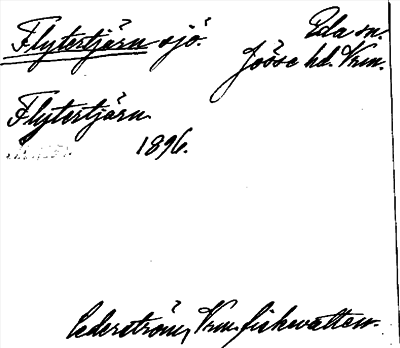 Flytertjärn sjö. Eda sn.
Jösse hd. Vrm.
Flytertjärn
1896.
Cederström, Vrm. fiskevatten.